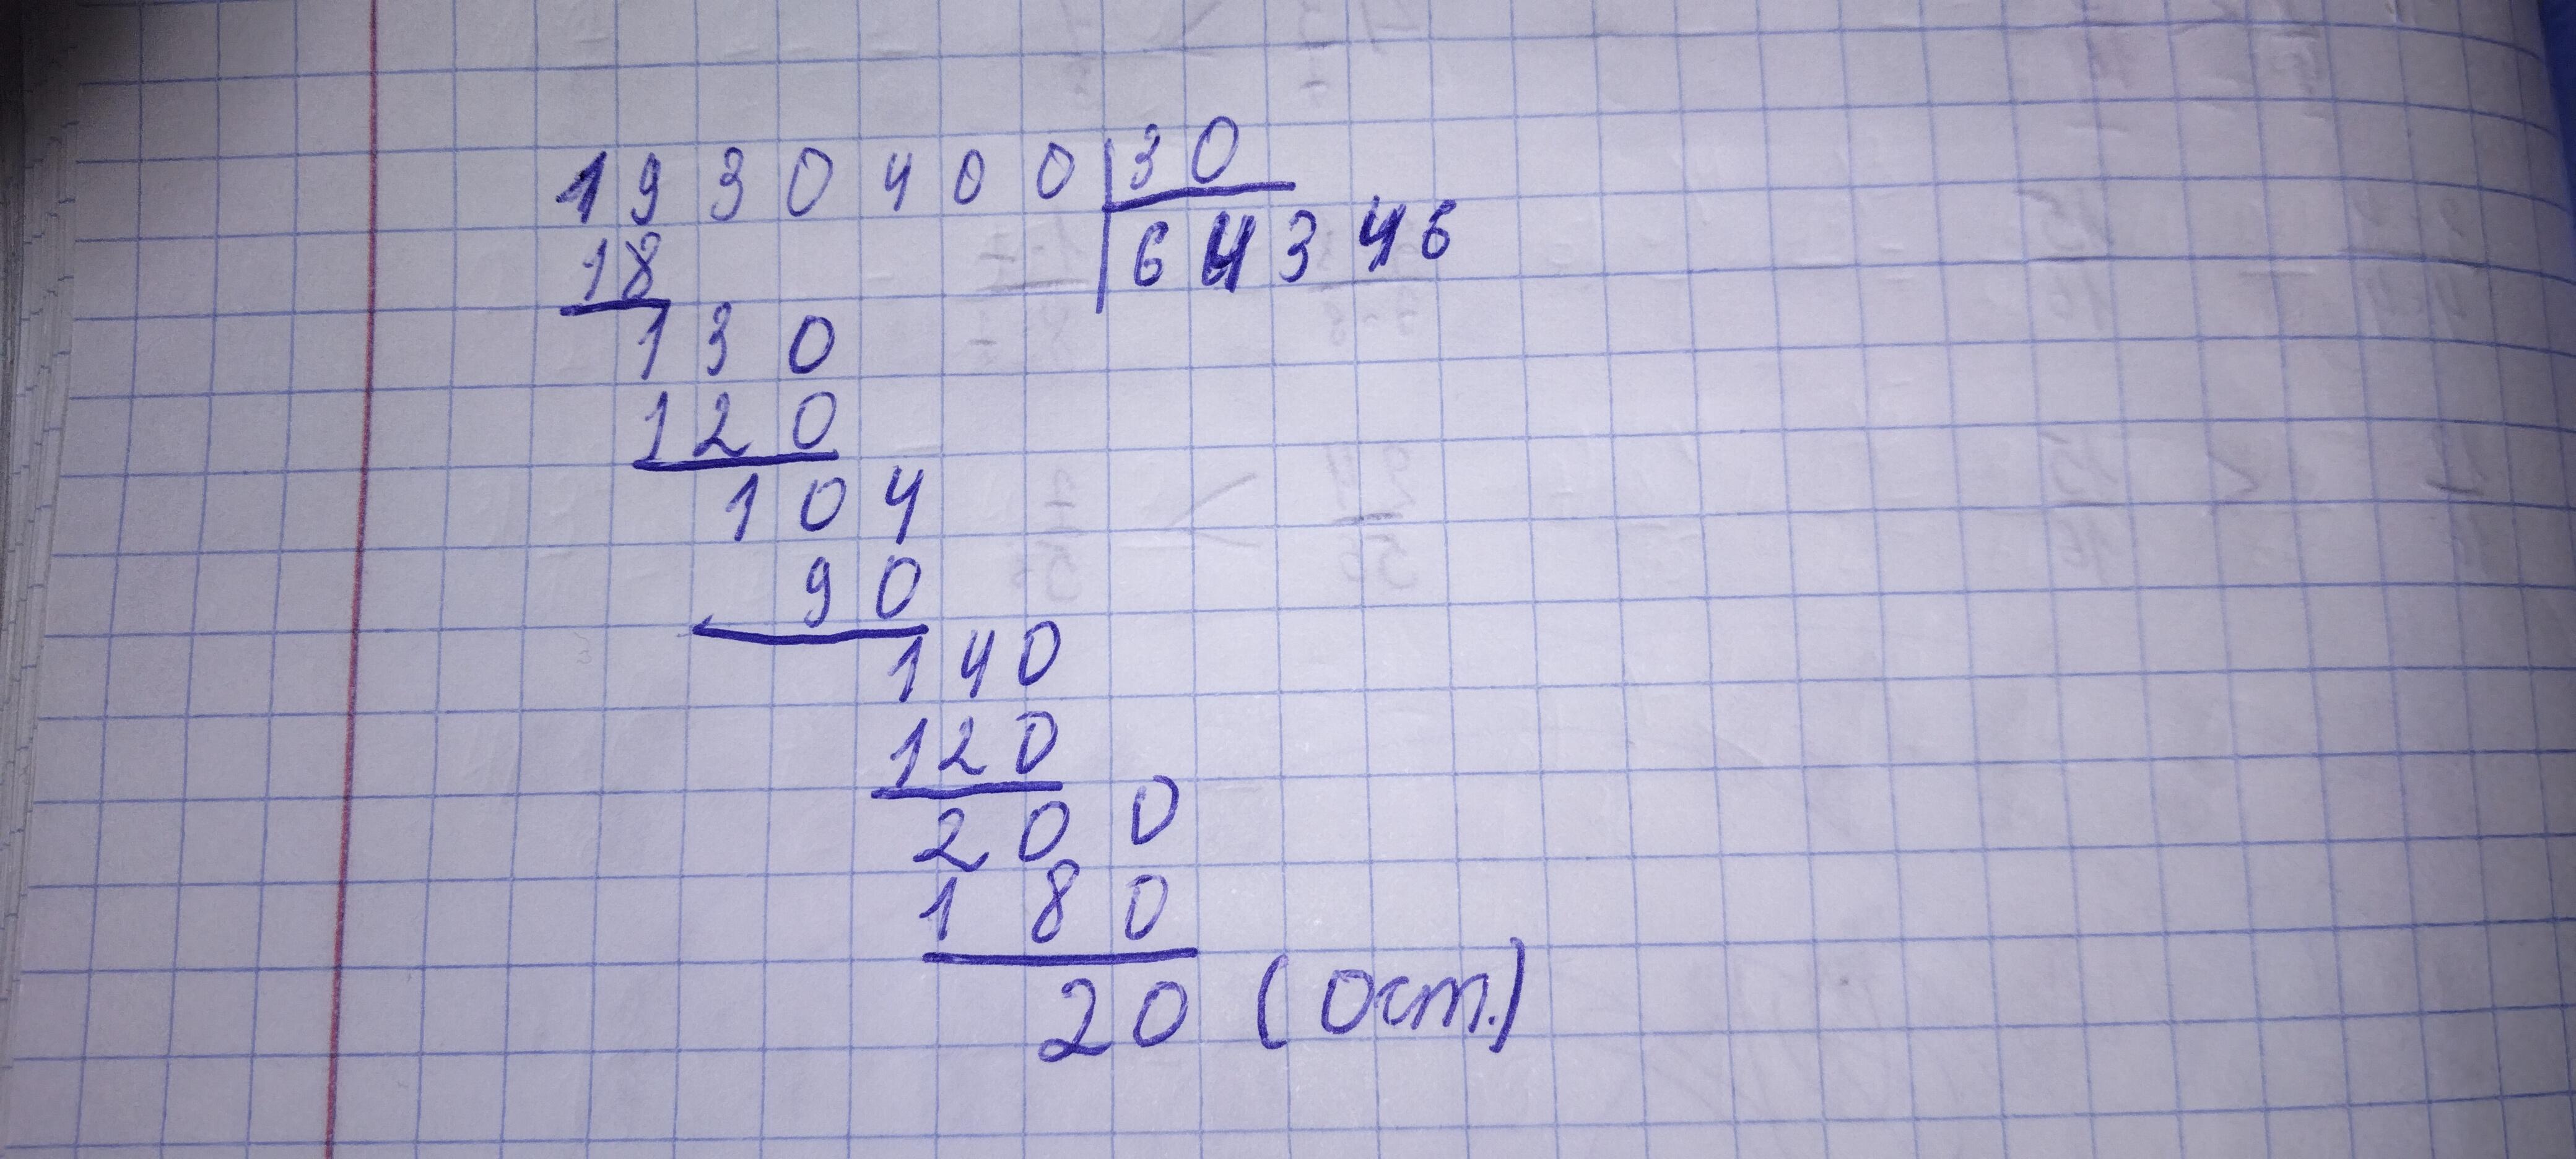 1930400 30
18 64346
130
120
104
90
140
120
200
180
20 (Ост.)